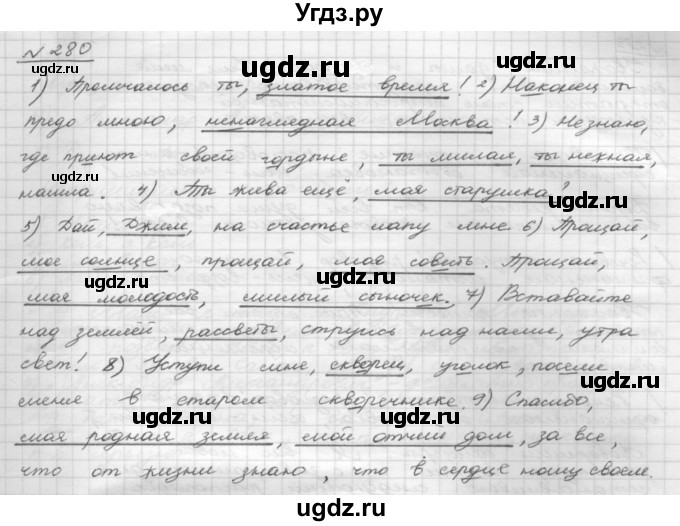 Угдз.ру
№ 280
1) Промчалось ты, златое время! 2) Наконец ты
предо мною, ненаглядная Москва! 3) Не знаю,
где приют своей гордыне, ты милая, ты нежная,
нашла. 4) Ты жива ещё, моя старушка?
5) Дай, Джим, на счастье лапу мне. 6) Прощай,
мое солнце, прощай, моя совесть. Прощай,
моя молодость, милый сыночек. 7) Вставайте
над землёй, рассветы, струись над нами, утра
свет! 8) Уступи мне, скворец, уголок, посели
меня в старом скворечнике. 9) Спасибо,
моя родная земля, мой отчий дом, за все,
что от жизни знаю, что в сердце ношу своем.
ugdz.ru
ugdz.ru
ugdz.ru
ugdz.ru
ugdz.ru
ugdz.ru
ugdz.ru
ugdz.ru
ugdz.ru
ugdz.ru
ugdz.ru
ugdz.ru
ugdz.ru
ugdz.ru